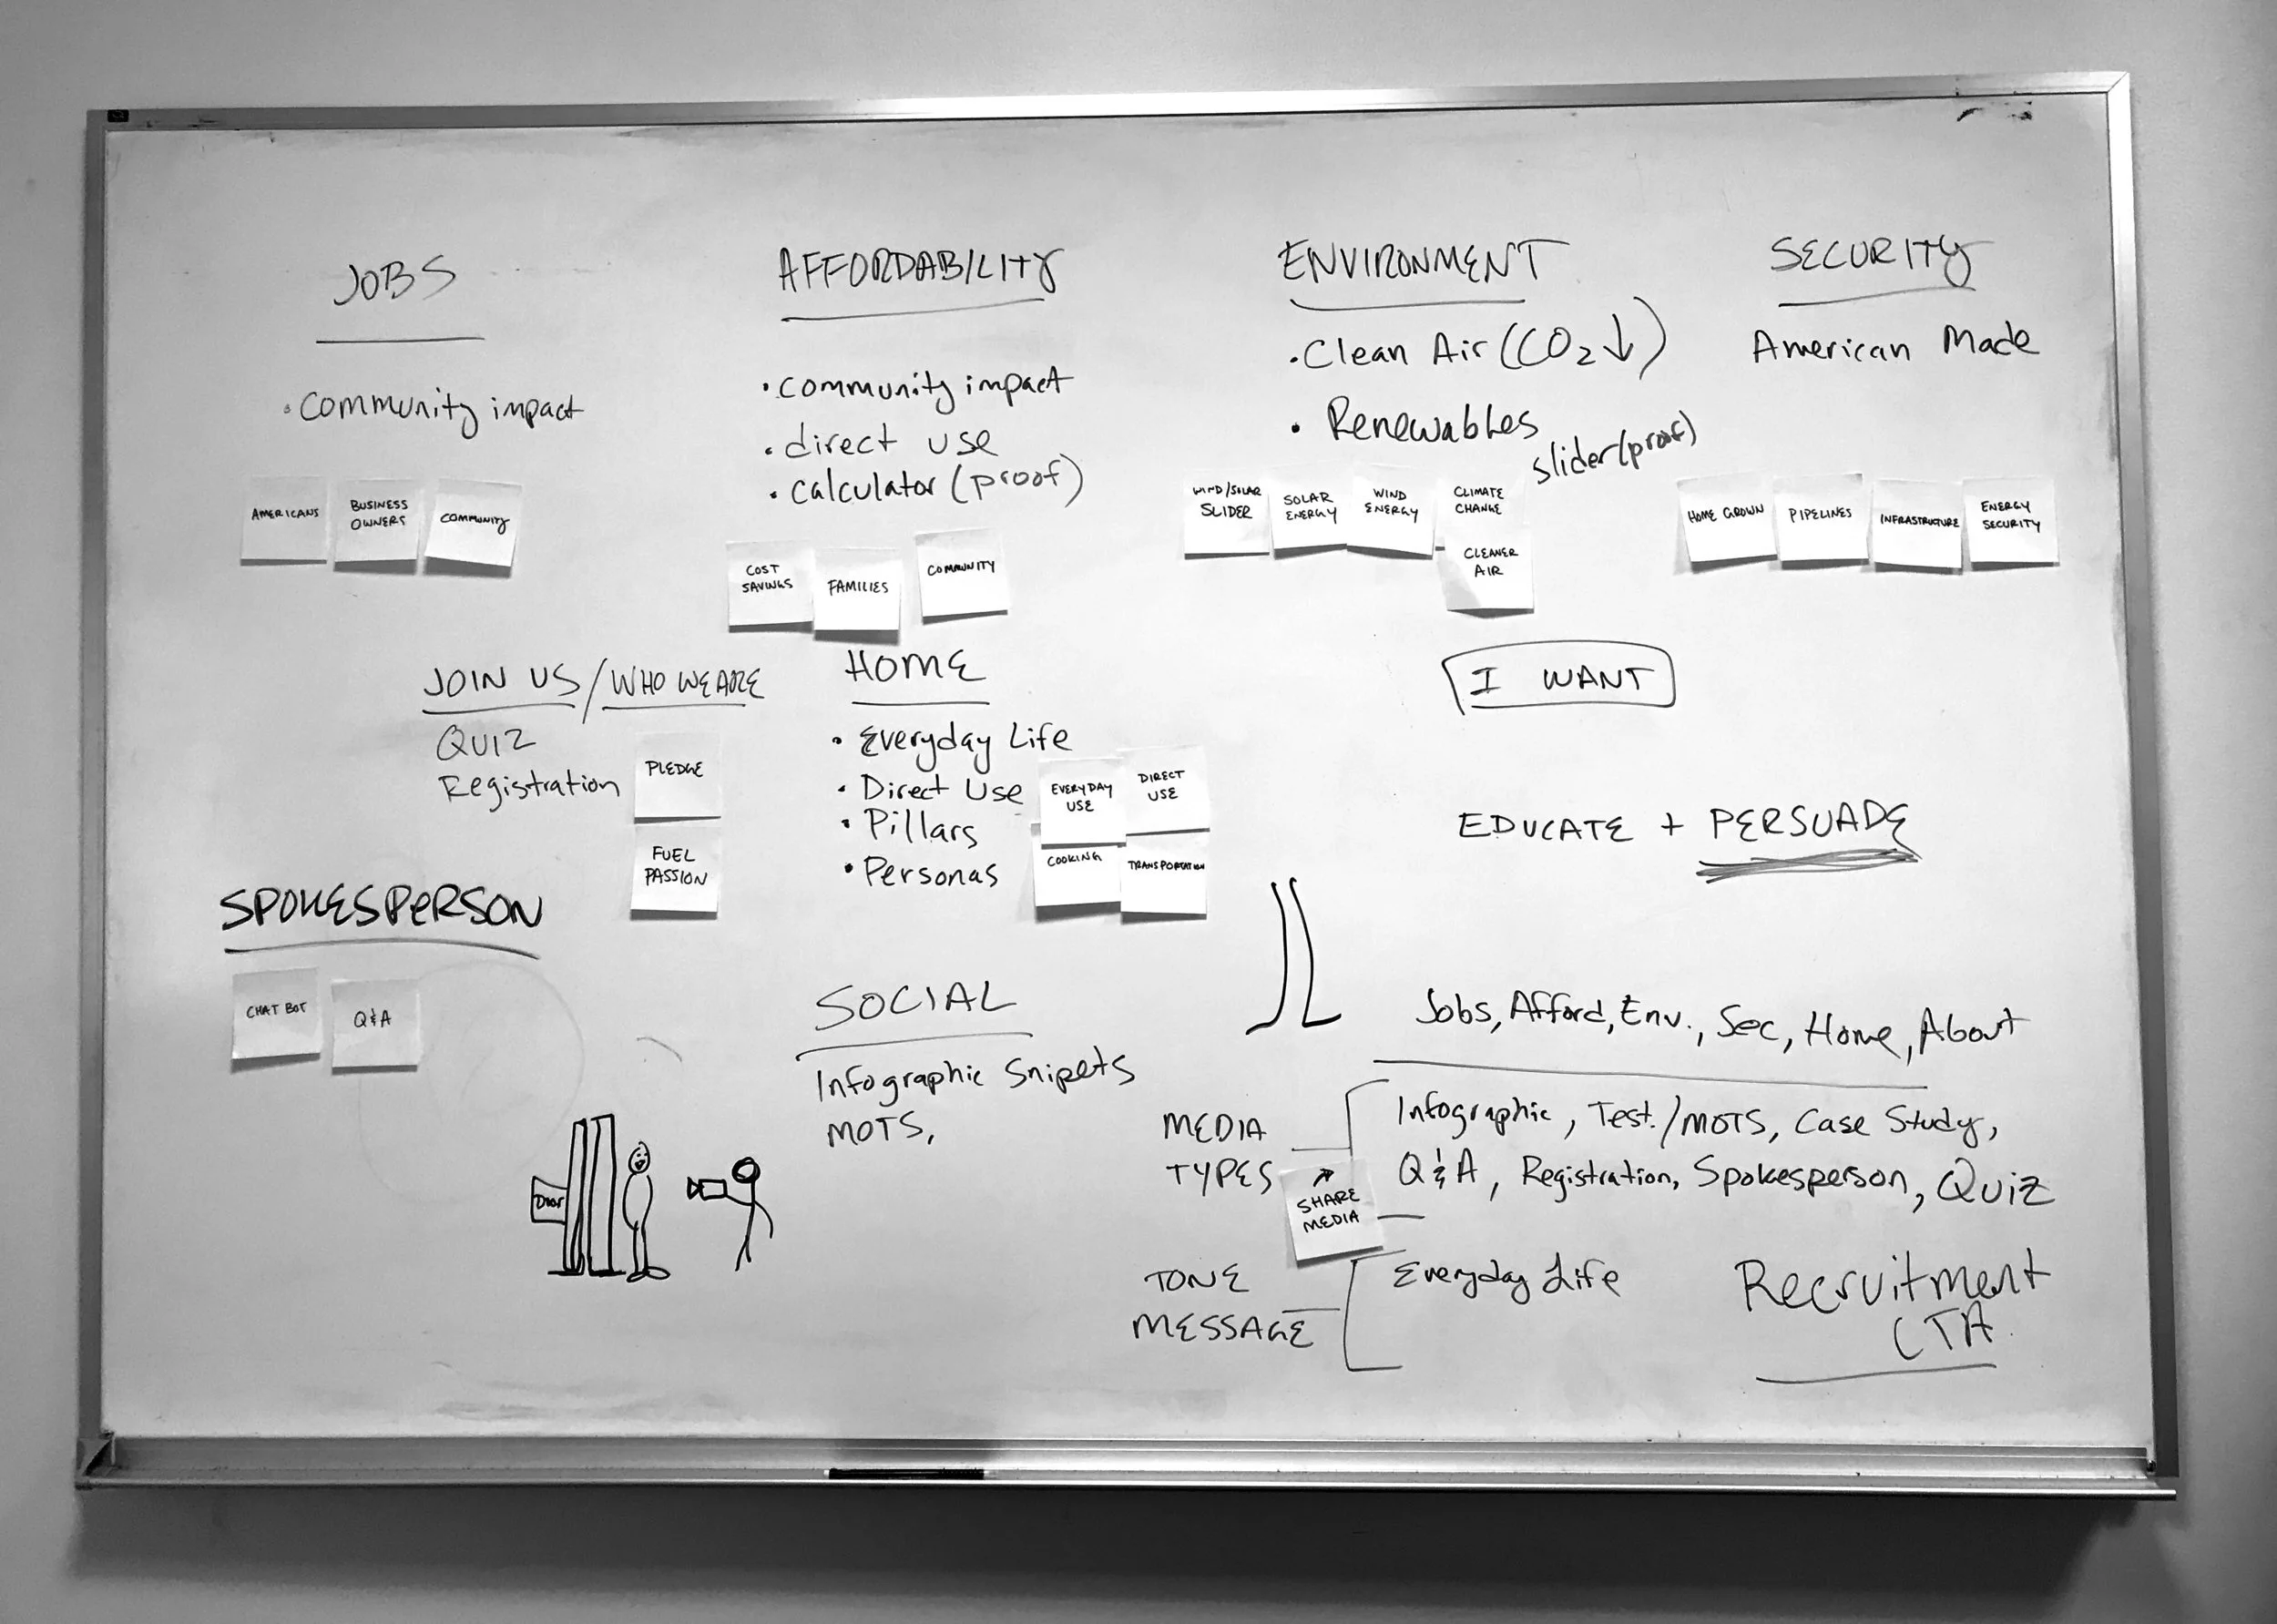 JOBS
• Community impact
AMERICANS
BUSINESS
OWNERS
COMMUNITY
AFFORDABILITY
• Community impact
• direct use
• Calculator (proof)
COST
SAVINGS
FAMILIES
COMMUNITY
ENVIRONMENT
• Clean Air (CO2↓)
• Renewables
Slider (proof)
WIND/SOLAR
SLIDER
SOLAR
ENERGY
WIND
ENERGY
CLIMATE
CHANGE
CLEANER
AIR
SECURITY
American Made
HOME GROWN
PIPELINES
INFRASTRUCTURE
ENERGY
SECURITY
JOIN US / WHO WE ARE
QUIZ
Registration
PLEDGE
FUEL
PASSION
HOME
• Everyday Life
• Direct Use
• Pillars
• Personas
EVERYDAY
USE
DIRECT
USE
COOKING
TRANSPORTATION
I WANT
EDUCATE + PERSUADE
SPOKESPERSON
CHAT BOT
Q&A
Door
SOCIAL
Infographic Snipets
MOTS,
Jobs, Afford, Env., Sec, Home, About
MEDIA
TYPES
Infographic, Test./MOTS, Case Study,
Q&A, Registration, Spokesperson, Quiz
SHARE
MEDIA
TONE
MESSAGE
Everyday Life
Recruitment
CTA